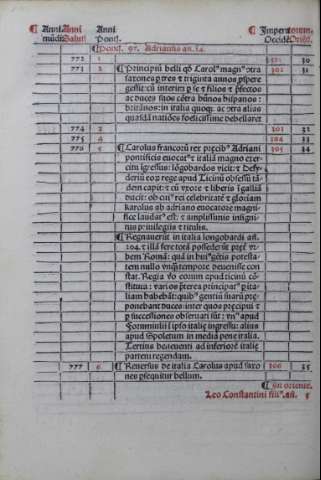 Anni Anni Anni Imperatorum.
mūdi: Salut: Pont. Occidē: Oriēt.
Pont. 97. Adrianus an. 24
772 1 30
773 2 Principiū belli qd Carolus magnus cōtra 302 31
saxones p tres & triginta annos pspere
gessit: cū interim p se & filios & pfectos
ac duces suos cōtra hūnos hispanos:
britānos: in italia quoq: ac cōtra alias
quasdā natiōes foelicissime debellaret
774 3 303 32
775 4 304 33
776 5 Carolus francorū rex precibus Adriani 305 34
pontificis euocatus ī italiā magno exer-
citu īgressus: lōgobardos vicit: & Desy-
deriū eorū rege apud Ticinū obsessū tā-
dem capit: & cū vxore & liberis ī galliā
ducit: ob cuius rei celebritatē & gloriam
karolus ab adriano euocatore magni-
fice laudatus est: & amplissimis insigni-
tus priuilegiis & titulis.
Regnauerūt in italia longobardi añ.
204. & illā fere totā possederūt preter vr-
bem Romā: quā in huius gētis potesta-
tem nullo vnquā tempore deuenisse con-
stat. Regia vero eorum apud ticinū cō-
stituta: varios preterea principatus p ita-
liam habebāt: quibus gentiū suarū pre-
ponebant duces inter quos precipui &
p successiones obseruati sūt: vnus apud
Foroiuliū ī ipso italie ingressu: alius
apud Spoletum in media pene italia.
Tertius beneuenti ad inferiorē italie
partem regendam.
777 6 Reuersus de italia Carolus apud saxo 306 35
nes psequitur bellum.
In oriente.
Leo Constantini filius. añ. 5